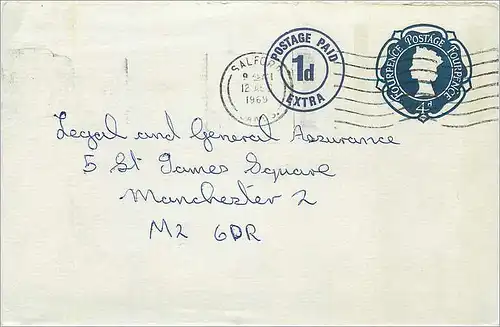 POSTAGE PAID
1d
EXTRA
FOURPENCE POSTAGE FOURPENCE
4d
SALFORD
12
1969
LANCS
Legal and General Assurance
5 St James Square
Manchester 2
M2 6DR